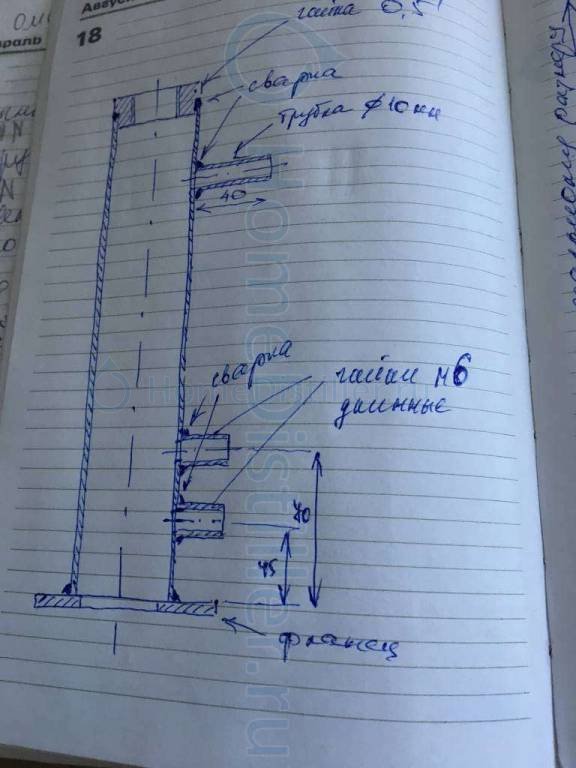 Август
18
гайка 0,5"
сварка
трубка ф10мм
40
сварка
гайки М6
длинные
70
45
фланец
HomeDistiller.ru
HomeDistiller.ru